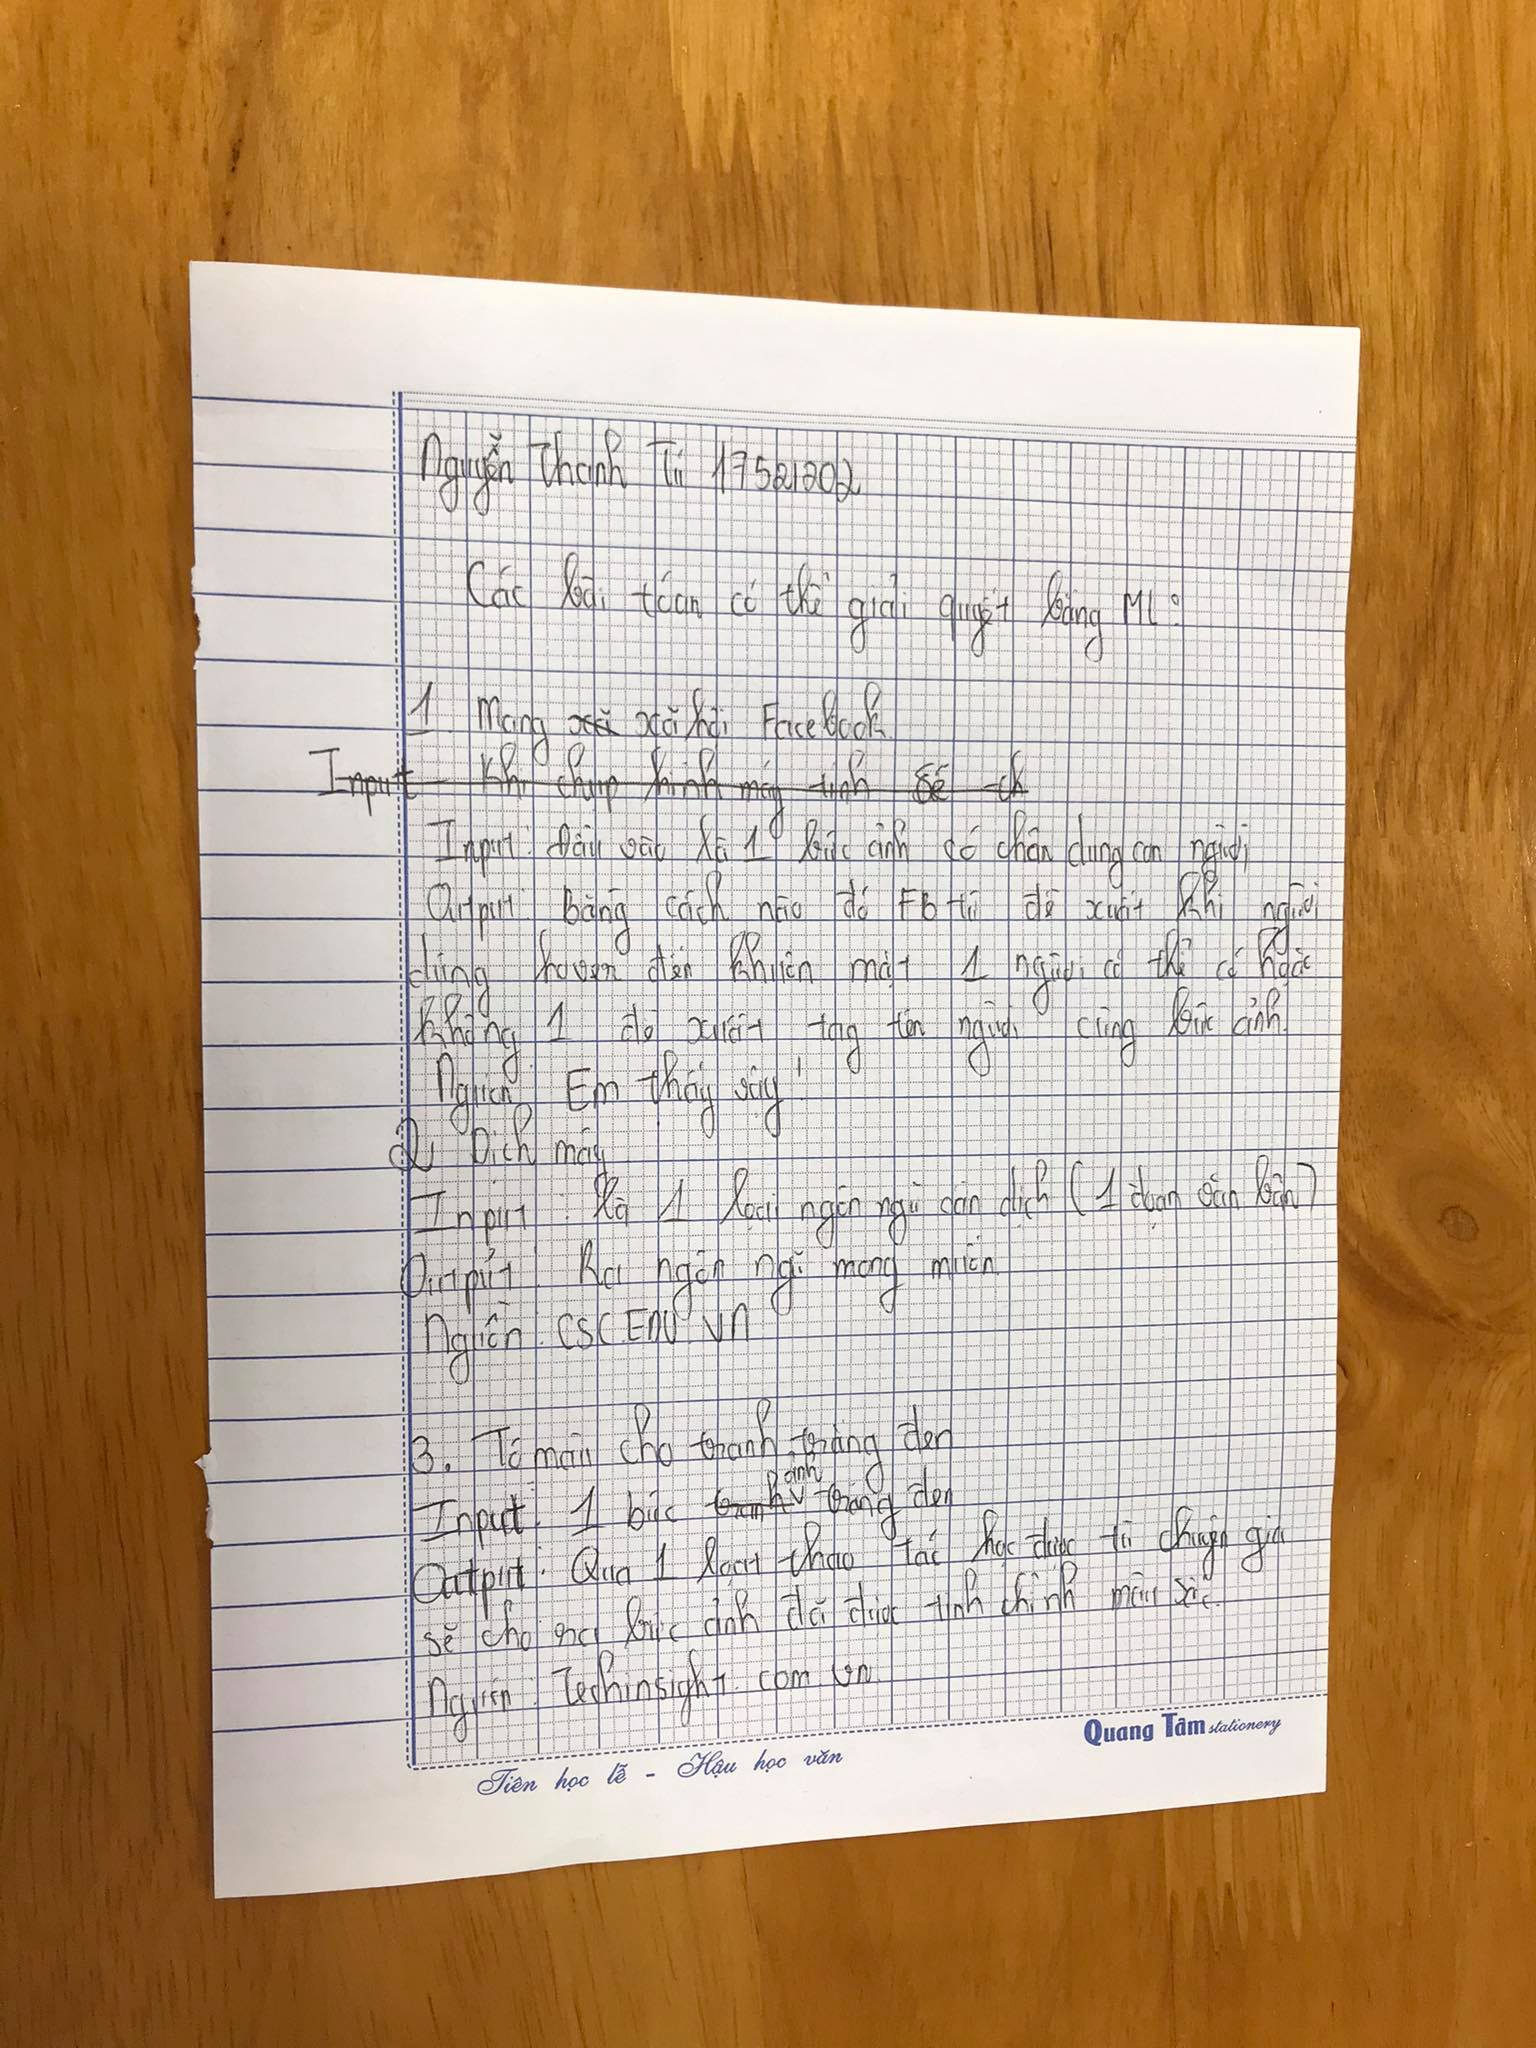 Nguyễn Thanh Tú 17521202
Các bài tóan có thể giải quyết bằng ML:
1. Mạng xã xã hội Facebook
Input Khi chụp hình máy tính sẽ
Input: Đầu vào là 1 bức ảnh có chân dung con người
Output: bằng cách nào đó FB tự đề xuất khi người
dùng hover đến khuôn mặt 1 người có thể có hoặc
không 1 đề xuất tag tên người cùng bức ảnh.
Nguồn: Em thấy vậy!
2 Dịch máy
Input: là 1 loại ngôn ngữ cần dịch (1 đoạn văn bản)
Output: Ra ngôn ngữ mong muốn.
Nguồn: CSC EDU VN
3. Tô màu cho tranh trắng đen
ảnh
Input: 1 bức tranh trắng đen
Output: Qua 1 loạt thao tác học được từ chuyên gia
sẽ cho ra bức ảnh đã được tinh chỉnh màu sắc.
Nguồn: Techinsight.com.vn.
Quang Tâm stationery
Tiên học lễ - Hậu học văn